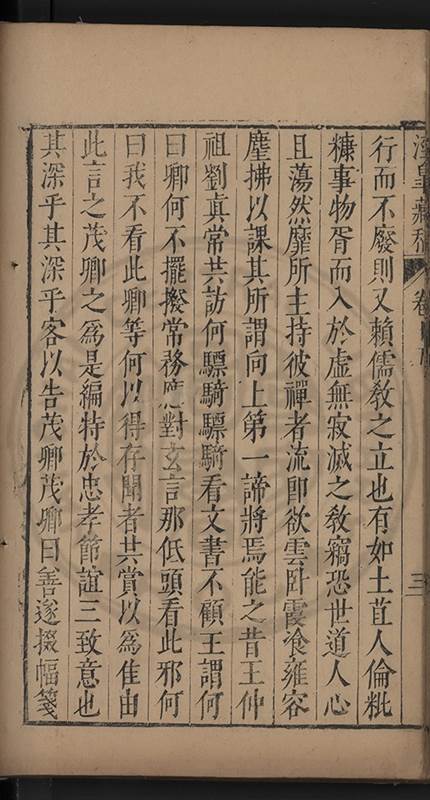 行而不廢則又賴儒教之立也有如土苴人倫粃
糠事物胥而入於虛無寂滅之教竊恐世道人心
且蕩然靡所主持彼禪者流卽欲雲卧霞飡雍容
麈拂以課其所謂向上第一諦將焉能之昔王仲
祖劉真常共訪何驃騎驃騎看文書不顧王謂何
曰卿何不擺撥常務應對玄言那低頭看此邪何
曰我不看此卿等何以得存聞者共賞以為佳由
此言之茂卿之為是編特於忠孝節誼三致意也
其深乎其深乎客以告茂卿茂卿曰善遂掇幅箋
卷
三